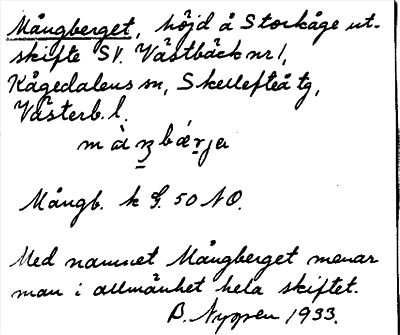 Mångberget, höjd å Storkåge ut-
skifte SV. Västbäck nr 1,
Kågedalens sn, Skellefteå tg,
Västerb. l.
Mångb. k G. 50 NO.
Med namnet Mångberget menar
man i allmänhet hela skiftet.
B. Nygren 1933.